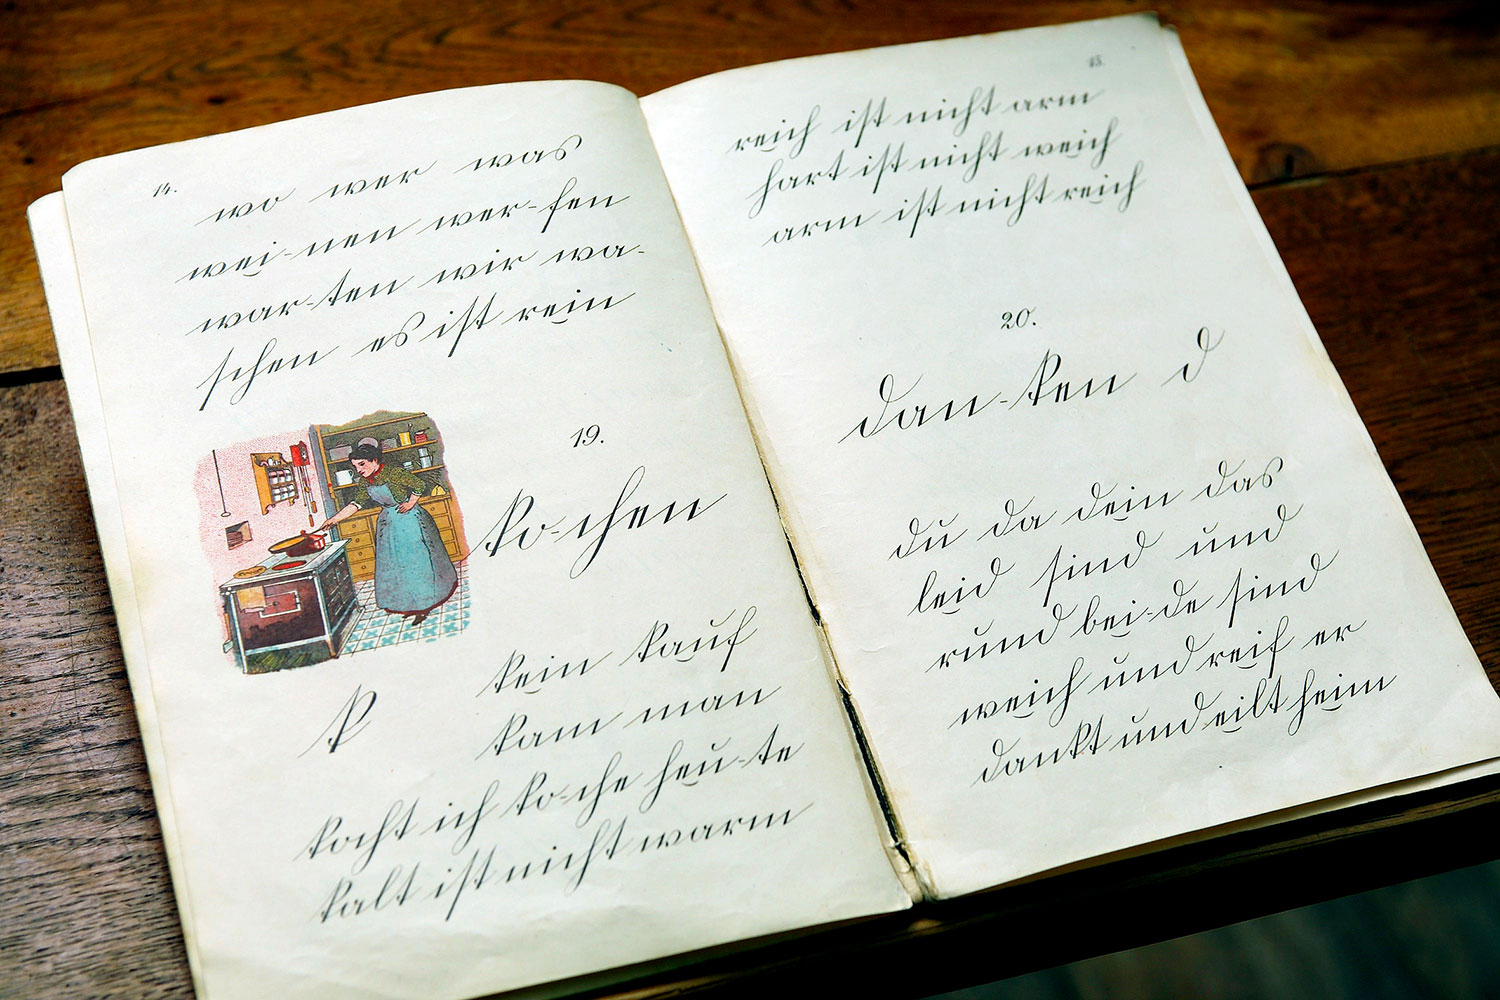 14.
wo wer was
wei-nen wer-fen
war-ten wir wa-
schen es ist rein
19.
ko-chen
k
kein kauf
kam man
kocht ich ko-che heu-te
kalt ist nicht warm
15.
reich ist nicht arm
hart ist nicht weich
arm ist nicht reich
20.
dan-ken d
du da dein das
leid sind und
rund bei-de sind
weich und reif er
dankt und eilt heim